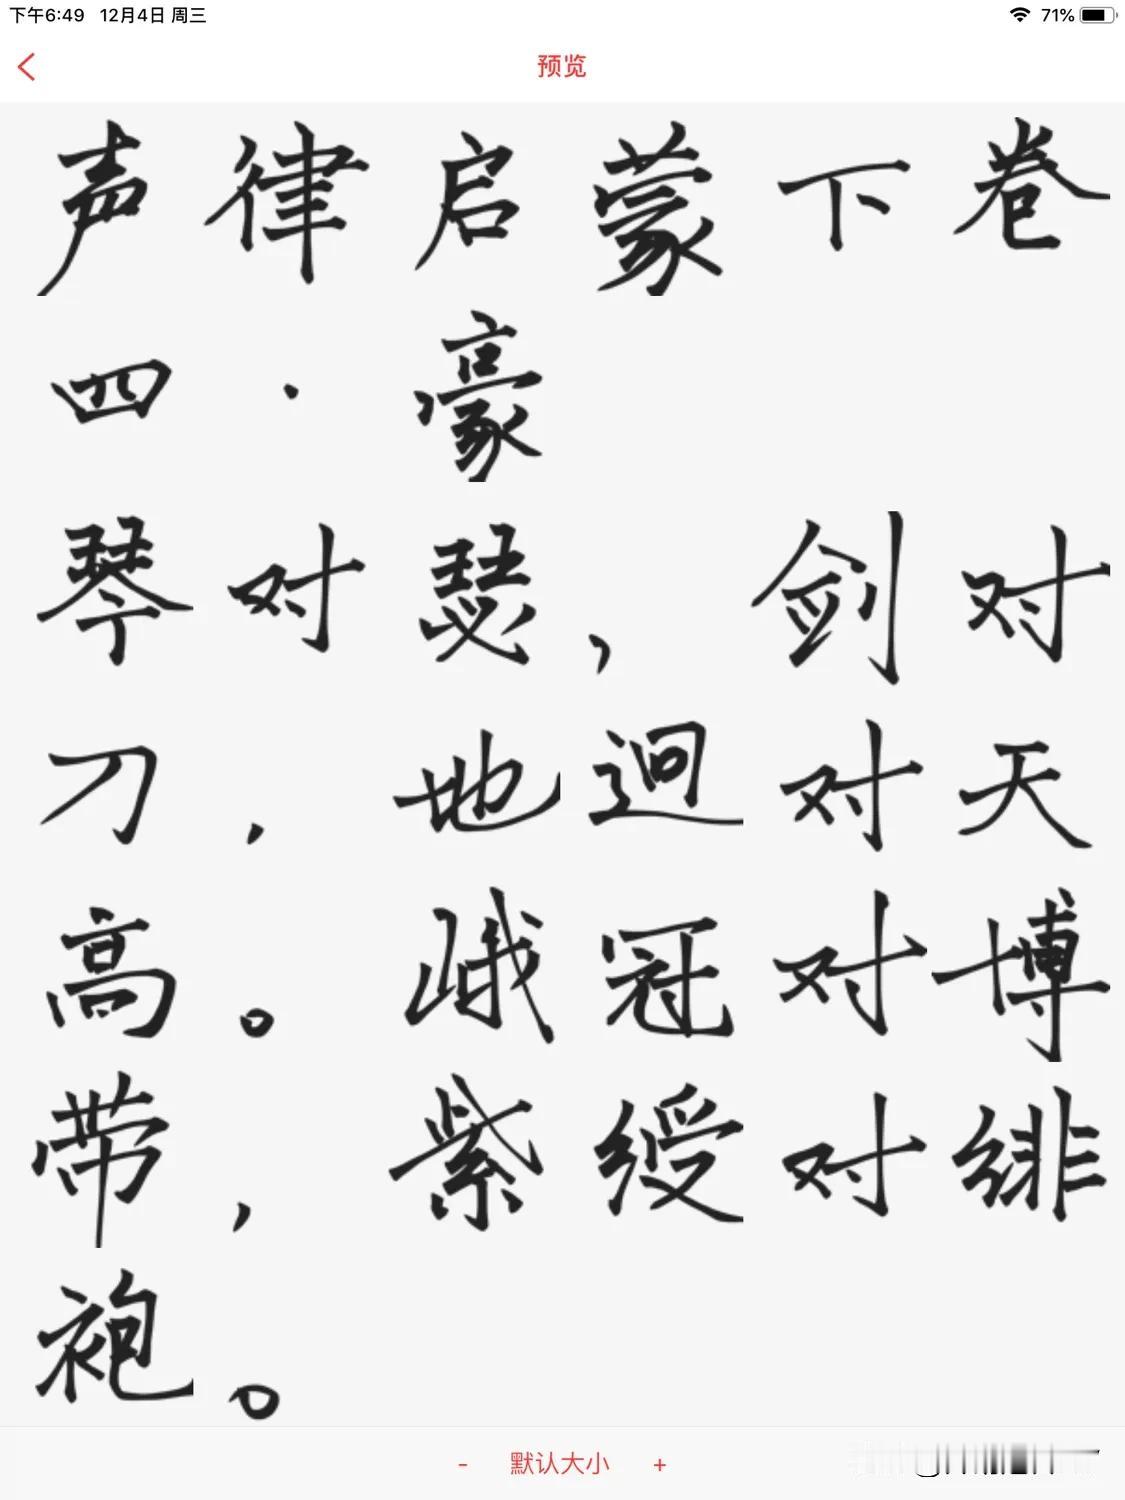 下午6:49 12月4日 周三 71%
预览
声律启蒙下卷
四·豪
琴对瑟，剑对
刀，地迥对天
高。峨冠对博
带，紫绶对绯
袍。
- 默认大小 +